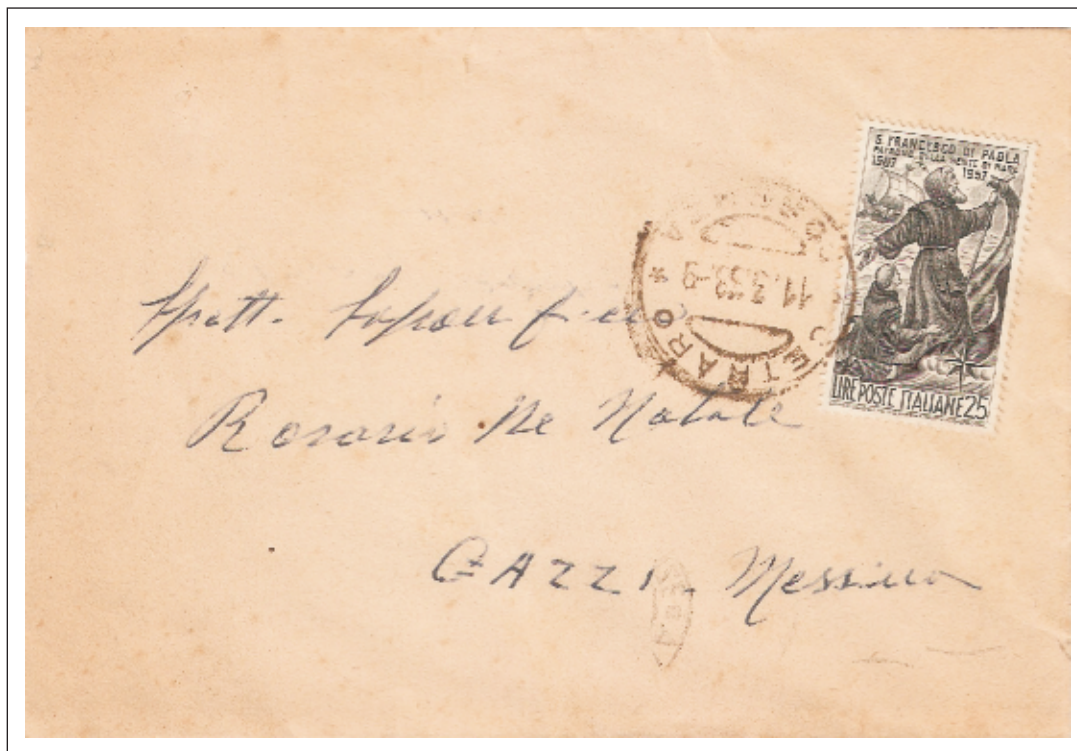 S. FRANCESCO DI PAOLA
PATRONO DELLA GENTE DI MARE
1507 1957
LIRE POSTE ITALIANE 25
CETRARO
11.3.58-9
Spett.
Rosario De Natale
GAZZI - Messina